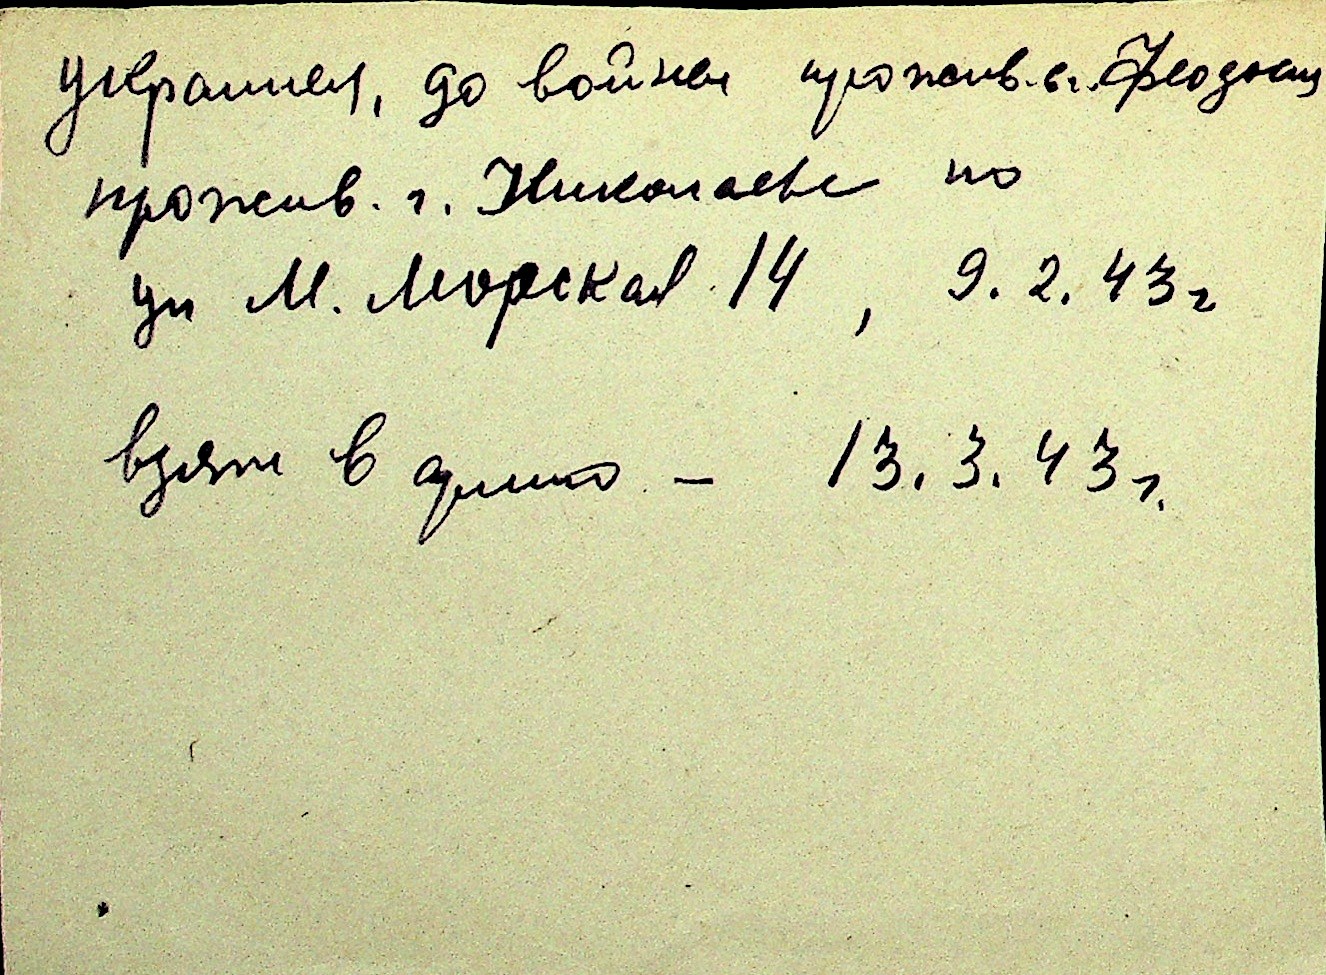 украинец, до войны прожив. в г. Феодосия
прожив. г. Николаеве по
ул М. Морская 14, 9.2.43г
взят в – 13.3.43г.